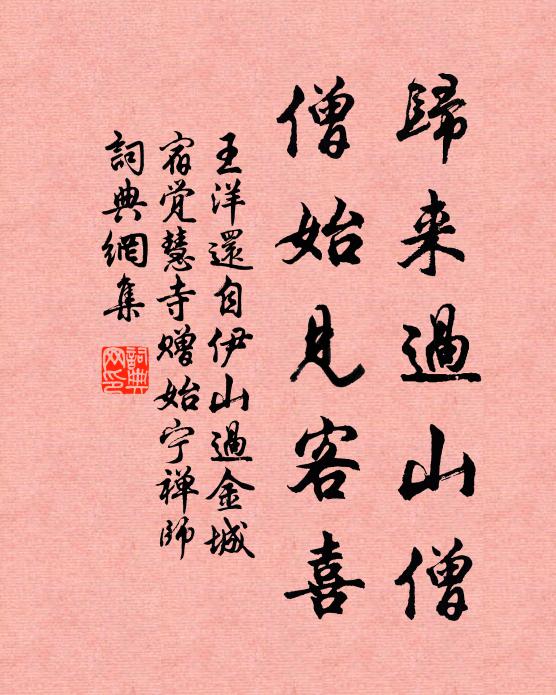 歸来過山僧
僧始見客喜
王洋還自伊山過金城
宿覺慧寺贈始宁禅師
詞典網集
詞典網印